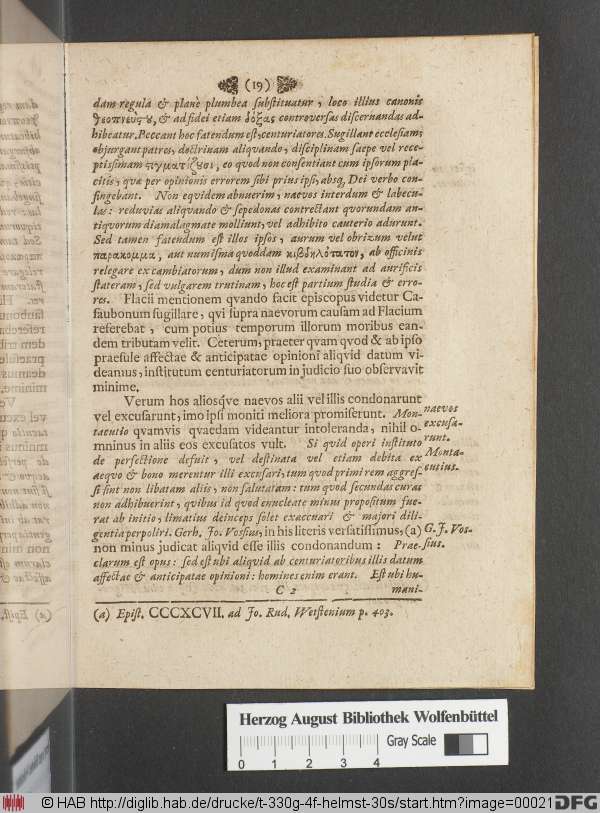 (19)
dam regula & planè plumbea substituatur, loco illius canonis
θεοπνεύςου, & ad fidei etiam δόξας controversas discernandas ad-
hibeatur. Peccant hoc fatendum est, centuriatores. Sugillant ecclesiam;
objurgant patres, doctrinam aliqvando, disciplinam saepe vel rece-
ptissimam ςιγματίζουσι, eo quod non consentiant cum ipsorum pla-
citis, quae per opinionis errorem sibi prius ipsi, absq; Dei verbo con-
fingebant. Non eqvidem abnuerim, naevos interdum & labecu-
las: reduvias aliqvando & sepedonas contrectant qvorundam an-
tiqvorum dia malagmate molliunt, vel adhibito cauterio adurunt.
Sed tamen fatendum est illos ipsos, aurum vel obrizum velut
παρακομμα, aut numisma quoddam κιβδηλότατον, ab officinis
relegare excambiatorum, dum non illud examinant ad aurificis
stateram, sed vulgarem trutinam, hoc est partium studia & erro-
res. Flacii mentionem qvando facit episcopus videtur Ca-
saubonum sugillare, qvi supra naevorum causam ad Flacium
referebat, cum potius temporum illorum moribus ean-
dem tributam velit. Ceterum, praeter qvam qvod & ab ipso
praesule affectae & anticipatae opinioni aliqvid datum vi-
deamus, institutum centuriatorum in judicio suo observavit
minime.
Verum hos aliosqve naevos alii vel illis condonarunt
vel excusarunt, imo ipsi moniti meliora promiserunt. Mon-
tacutio qvamvis qvaedam videantur intoleranda, nihil o-
mninus in aliis eos excusatos vult. Si quid operi instituto
de perfectione defuit, vel destinata vel etiam debita ex
aequo & bono merentur illi excusari, tum quod primi rem aggres-
si sint non libatam aliis, non salutatam: tum quod secundas curas
non adhibuerint, qvibus id quod enucleate minus propositum fue-
rat ab initio, limatius deinceps solet exaccuari & majori dili-
gentia perpoliri. Gerh. Jo. Vossius, in his literis versatissimus, (a)
non minus judicat aliqvid esse illis condonandum: Prae-
clarum est opus: sed est ubi aliqvid ab centuriatoribus illis datum
affectae & anticipatae opinioni: homines enim erant. Est ubi hu-
C 2
mani-
naevos
excusa-
runt.
Monta-
cutius.
G. J. Vos-
sius.
(a) Epist. CCCXCVII. ad Jo. Rud. Wetstenium p. 403.
Herzog August Bibliothek Wolfenbüttel
0 1 2 3 4
Gray Scale
© HAB http://diglib.hab.de/drucke/t-330g-4f-helmst-30s/start.htm?image=00021
DFG